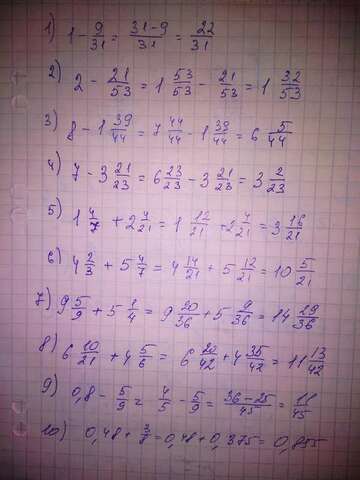 1) 1 - 9/31 = (31-9)/31 = 22/31
2) 2 - 21/53 = 1 53/53 - 21/53 = 1 32/53
3) 8 - 1 39/44 = 7 44/44 - 1 39/44 = 6 5/44
4) 7 - 3 21/23 = 6 23/23 - 3 21/23 = 3 2/23
5) 1 4/7 + 2 4/21 = 1 12/21 + 2 4/21 = 3 16/21
6) 4 2/3 + 5 4/7 = 4 14/21 + 5 12/21 = 10 5/21
7) 9 5/9 + 5 1/4 = 9 20/36 + 5 9/36 = 14 29/36
8) 6 10/21 + 4 5/6 = 6 20/42 + 4 35/42 = 11 13/42
9) 0,8 - 5/9 = 4/5 - 5/9 = (36-25)/45 = 11/45
10) 0,48 + 3/8 = 0,48 + 0,375 = 0,855